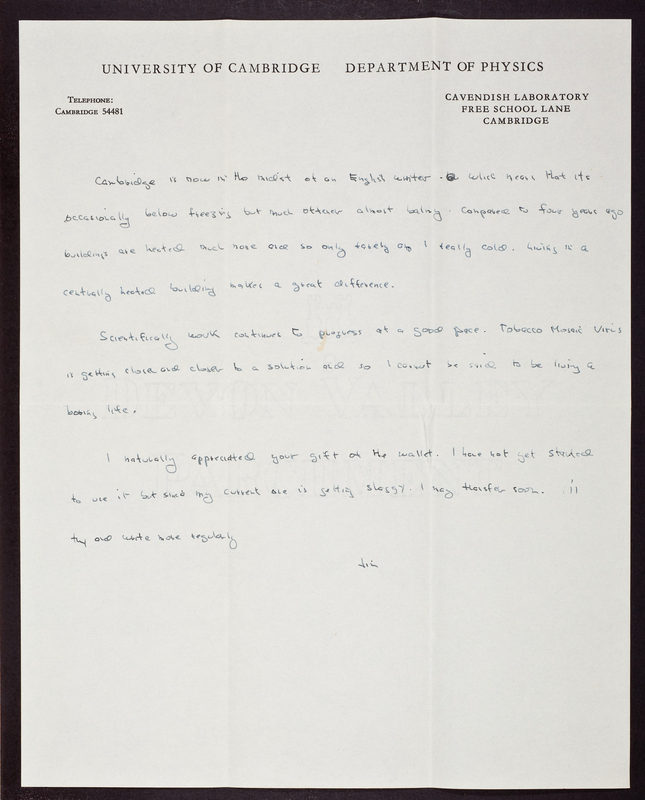 UNIVERSITY OF CAMBRIDGE DEPARTMENT OF PHYSICS
TELEPHONE:
CAMBRIDGE 54481
CAVENDISH LABORATORY
FREE SCHOOL LANE
CAMBRIDGE
Cambridge is now in the midst of an English winter - which means that its
occasionally below freezing but much oftener almost balmy. Compared to four years ago
buildings are heated much more and so only rarely am I really cold. Living in a
centrally heated building makes a great difference.
Scientifically work continues to progress at a good pace. Tobacco Mosaic Virus
is getting closer and closer to a solution and so I cannot be said to be living a
boring life.
I naturally appreciated your gift of the wallet. I have not yet started
to use it but since my current one is getting shaggy. I may transfer soon. I'll
try and write more regularly
Jim